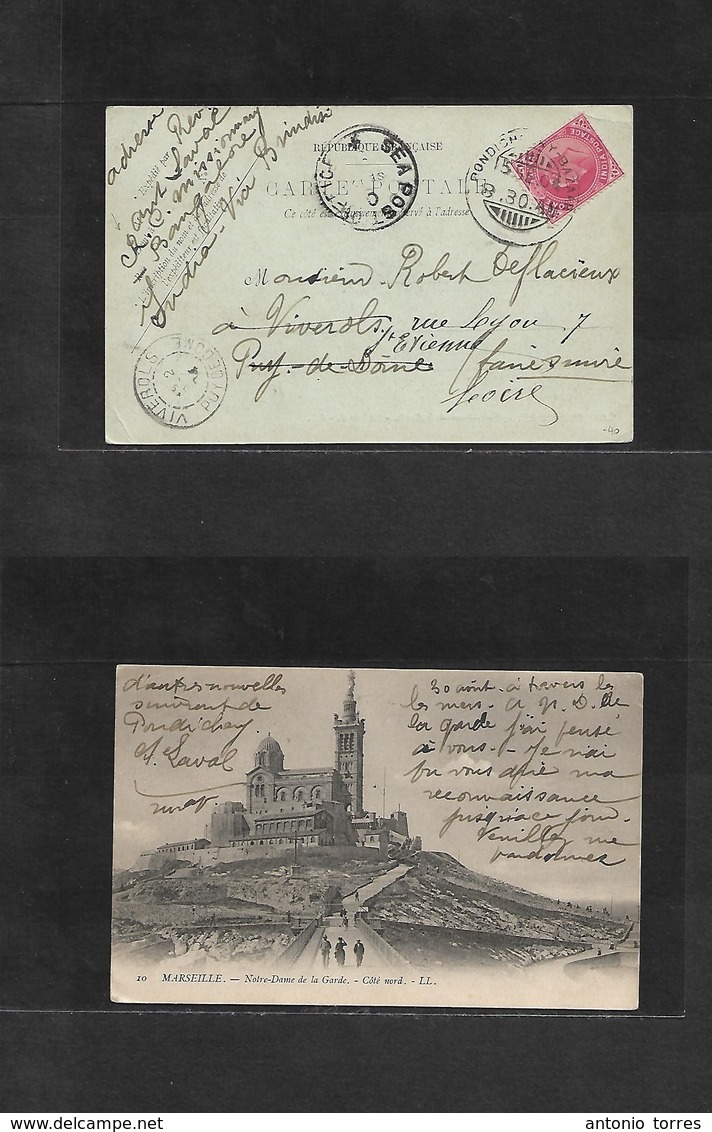 adresse
Rev
Laval
R.C. missionnary
Bangalore
India - Via Brindisi
RÉPUBLIQUE FRANÇAISE
CARTE POSTALE
Ce côté est exclusivement réservé à l'adresse
SEA POST OFFICE
C
PONDICHERRY BAZAAR
8.30.AM
INDIA POSTAGE
Monsieur Robert Deflacieux
à Viverols, rue Lyon 7
St Etienne
Puy-de-Dôme
Loire
VIVEROLS
PUY DE DOME
-40
d'autres nouvelles
suivront de
Pondichery
Laval
30 août. à travers les
les mers. a N. D. de
la garde j'ai pensé
à vous. - Je n'ai
pu vous dire ma
reconnaissance
jusqu'à ce jour.
Veuillez me
pardonner
10 MARSEILLE. — Notre-Dame de la Garde. - Côté nord. - LL.
antonio torres